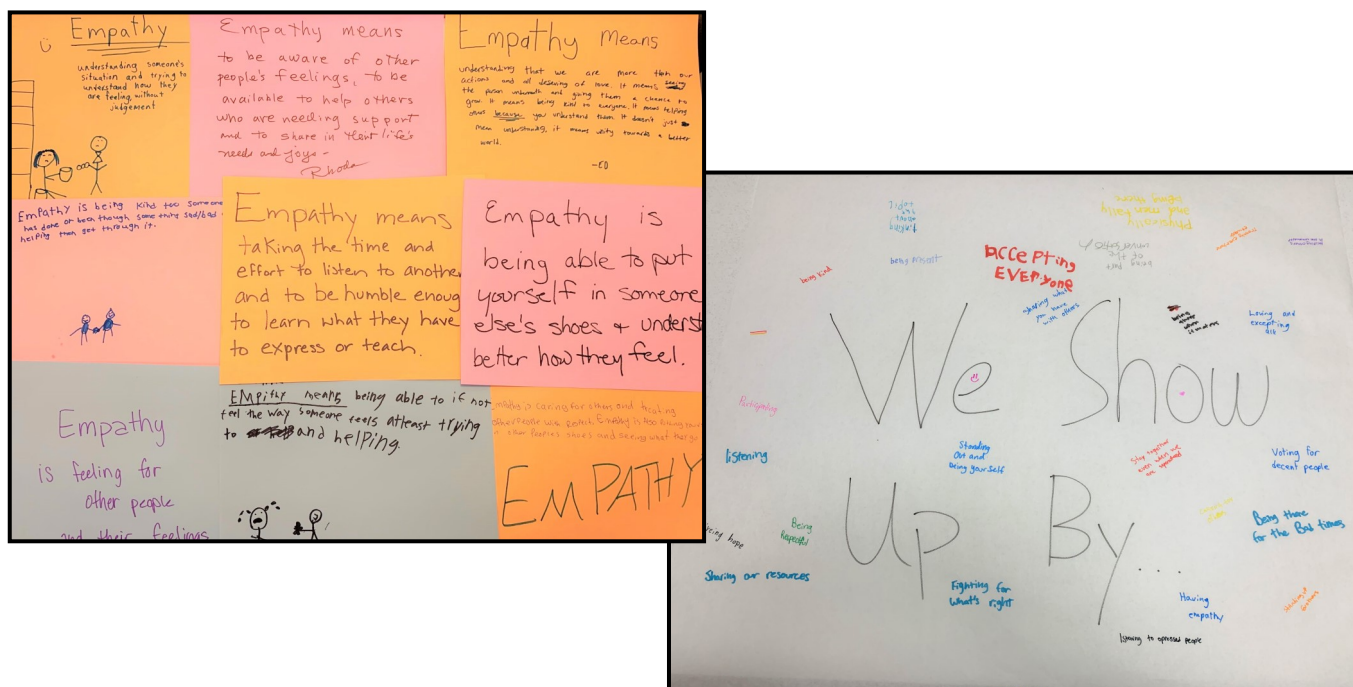 Empathy
understanding someone's
situation and trying to
understand how they
are feeling, without
judgement
Empathy means
to be aware of other
people's feelings, to be
available to help others
who are needing support
and to share in their life's
needs and joys -
Rhoda
Empathy Means
understanding that we are more than our
actions and all deserving of love. It means seeing
the person underneath and giving them a chance to
grow. It means being kind to everyone. It means helping
others because you understand them it doesn't just
mean understanding, it means unity towards a better
world.
Empathy is being kind too someone
has done or been though some thing sad/bad
helping them get through it.
Empathy means
taking the time and
effort to listen to another
and to be humble enoug
to learn what they have
to express or teach.
Empathy is
being able to put
yourself in someone
else's shoes + underst
better how they feel.
Empathy
is feeling for
other people
and their feelings
EMPithy means being able to if not
feel the way someone feels atleast trying
to and helping.
Empathy is caring for others and treating
other people with
other peoples shoes and seeing what they
EMPATHY
We Show
Up By...
talking
about
the
topic
physically
and mentally
being there
being part
of the
being kind
being present
Accepting
EVERyone
sharing what
you have
with others
being
there
when
it matters
Loving and
excepting
all
Participating
listening
Standing
Out and
being yourself
Stay together
even when we
Voting for
decent people
being hope
Being
Respectful
Being there
for the Bad times
Sharing our resources
Fighting for
what's right
Having
empathy
listening to oppressed people